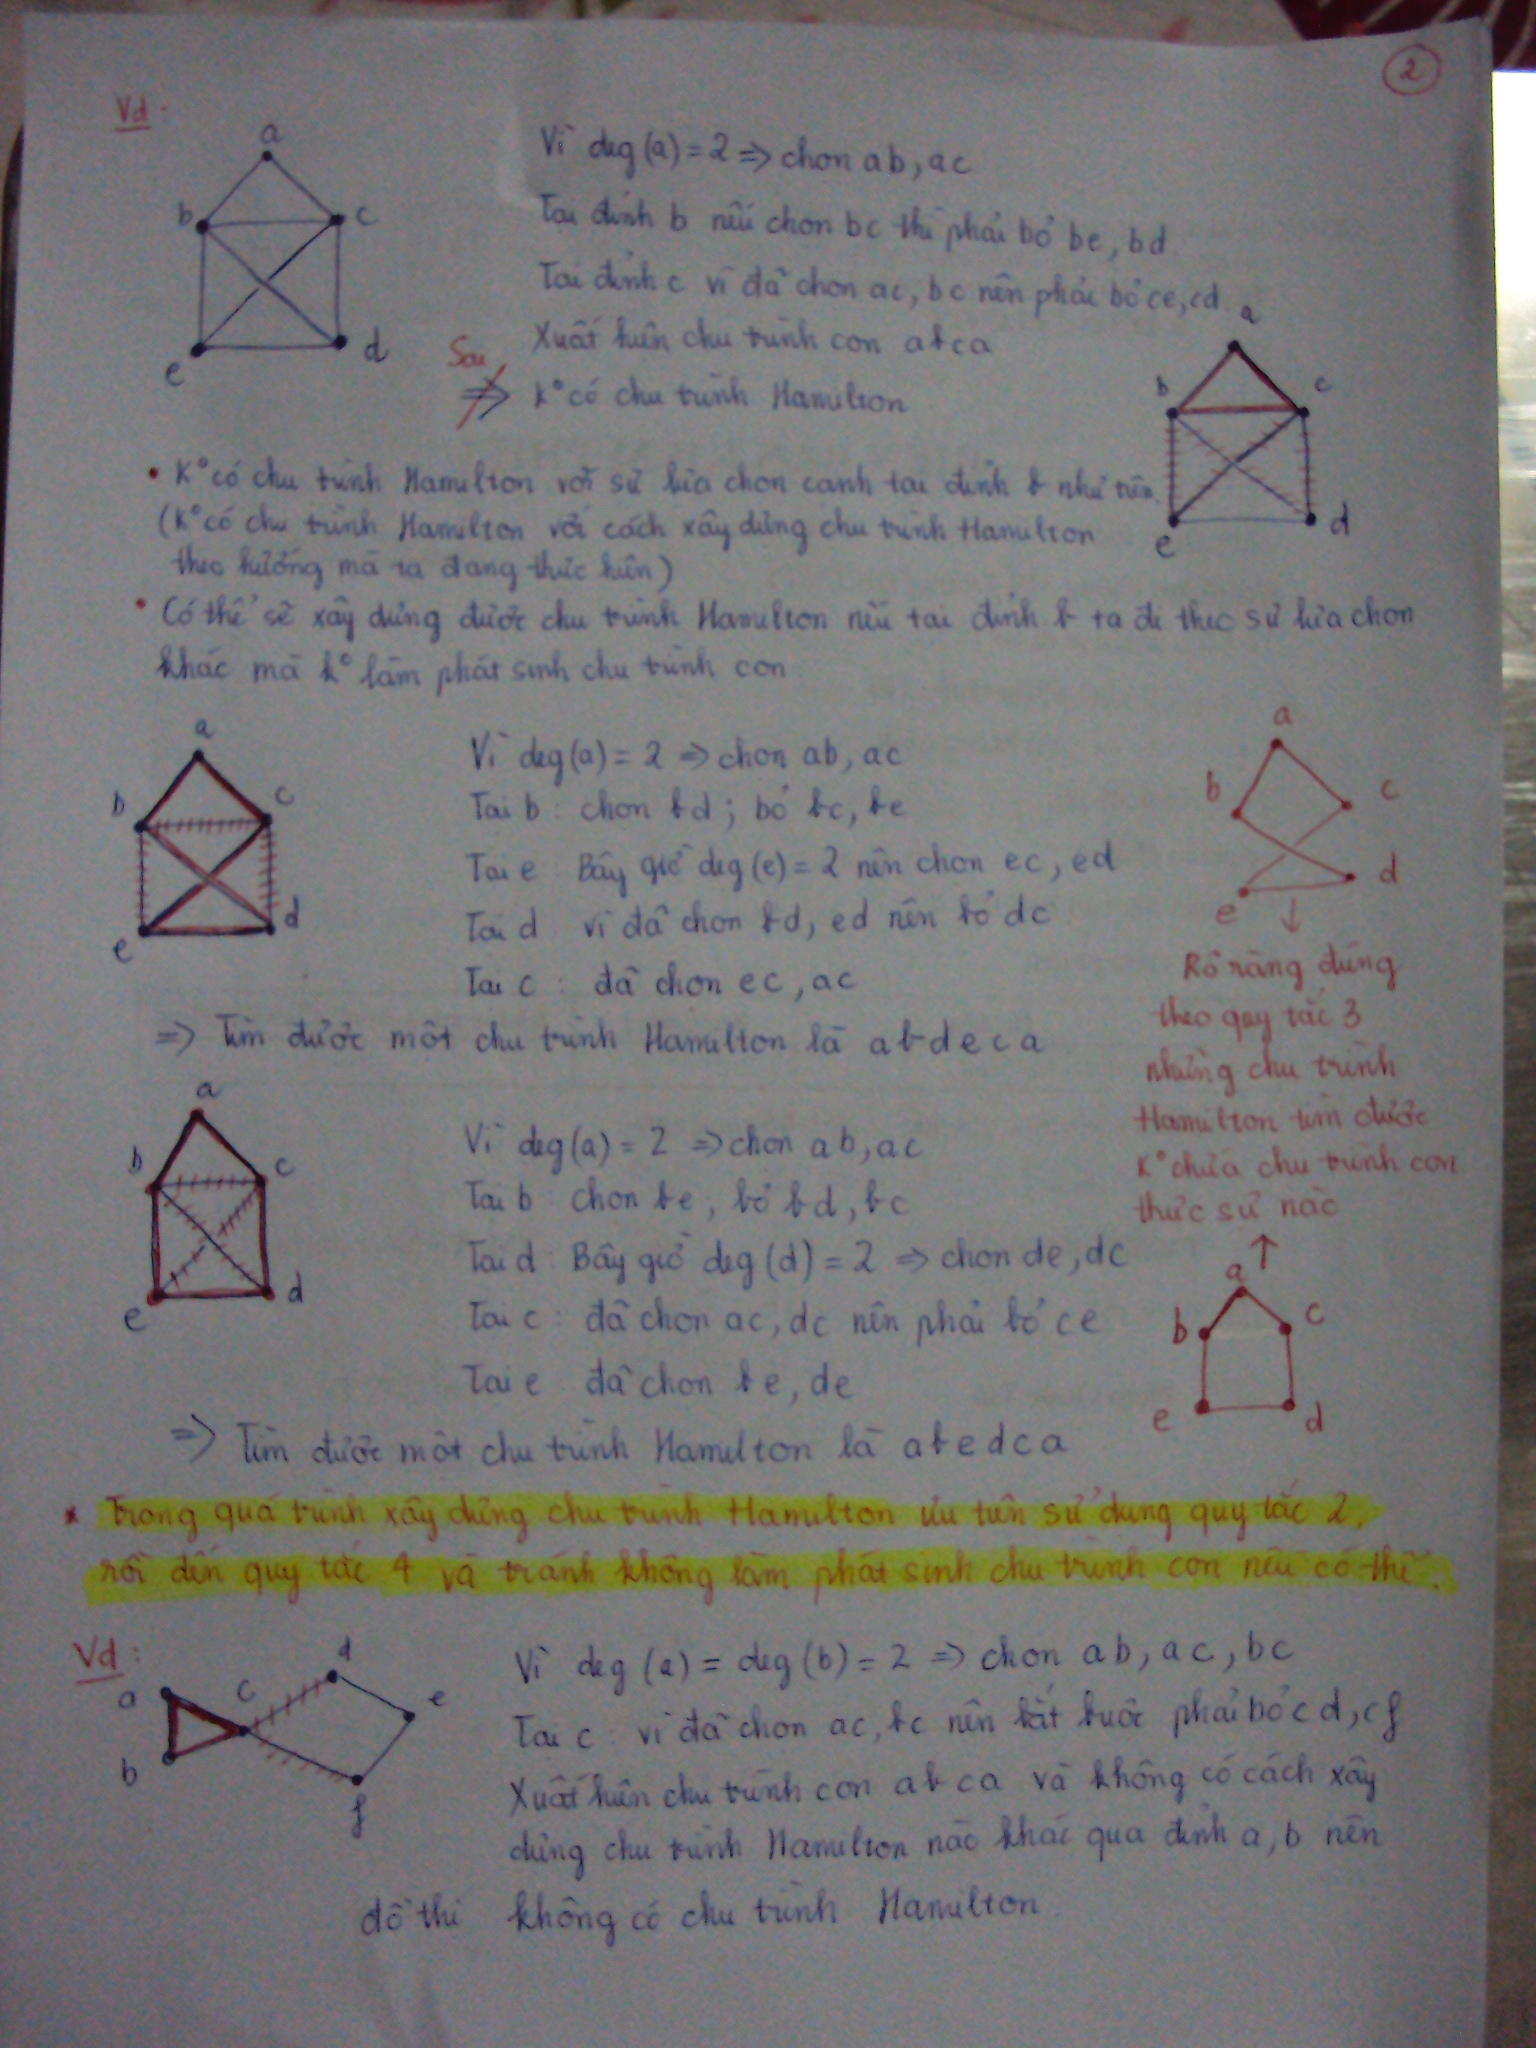 2
Vd :
a
b
c
e
d
Vì deg(a) = 2 => chọn ab, ac
Tại đỉnh b nếu chọn bc thì phải bỏ be, bd
Tại đỉnh c vì đã chọn ac, bc nên phải bỏ ce, cd
Xuất hiện chu trình con abca
Sai
=> K° có chu trình Hamilton
a
b
c
e
d
• K° có chu trình Hamilton với sự lựa chọn cạnh tại đỉnh b như trên.
(K° có chu trình Hamilton với cách xây dựng chu trình Hamilton
theo hướng mà ta đang thực hiện)
• Có thể sẽ xây dựng được chu trình Hamilton nếu tại đỉnh b ta đi theo sự lựa chọn
khác mà k° làm phát sinh chu trình con
a
b
c
e
d
Vì deg(a) = 2 => chọn ab, ac
Tại b : chọn bd ; bỏ bc, be
Tại e : Bây giờ deg(e) = 2 nên chọn ec, ed
Tại d : vì đã chọn bd, ed nên bỏ dc
Tại c : đã chọn ec, ac
=> Tìm được một chu trình Hamilton là abdeca
a
b
c
e
d
↓
Rõ ràng đúng
theo quy tắc 3
nhưng chu trình
Hamilton tìm được
K° chứa chu trình con
thực sự nào
↑
a
b
c
e
d
Vì deg(a) = 2 => chọn ab, ac
Tại b : chọn be, bỏ bd, bc
Tại d : Bây giờ deg(d) = 2 => chọn de, dc
Tại c : đã chọn ac, dc nên phải bỏ ce
Tại e đã chọn be, de
=> Tìm được một chu trình Hamilton là abedca
a
b
c
e
d
* Trong quá trình xây dựng chu trình Hamilton ưu tiên sử dụng quy tắc 2,
rồi đến quy tắc 4 và tránh không làm phát sinh chu trình con nếu có thể.
Vd :
a
b
c
d
e
f
Vì deg(a) = deg(b) = 2 => chọn ab, ac, bc
Tại c : vì đã chọn ac, bc nên bắt buộc phải bỏ cd, cf
Xuất hiện chu trình con abca và không có cách xây
dựng chu trình Hamilton nào khác qua đỉnh a, b nên
đồ thị không có chu trình Hamilton.